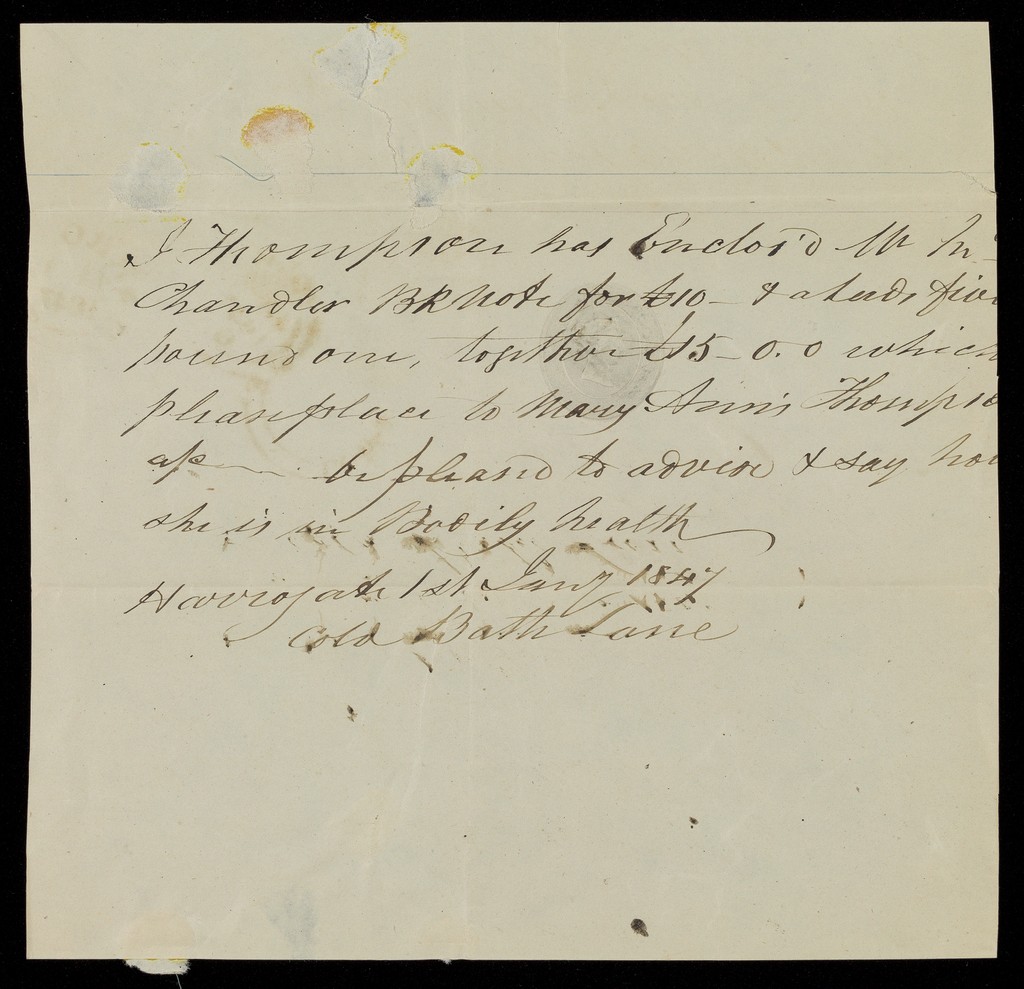 J Thompson has Enclos'd Mr
Chandler BK Note for £10 - & a Leeds five
pound one, together £15 - 0. 0 which
please place to Mary Ann's Thompso
be pleased to advise & say how
she is in Bodily health
Harrogate 1st Jany 1847
Cold Bath Lane